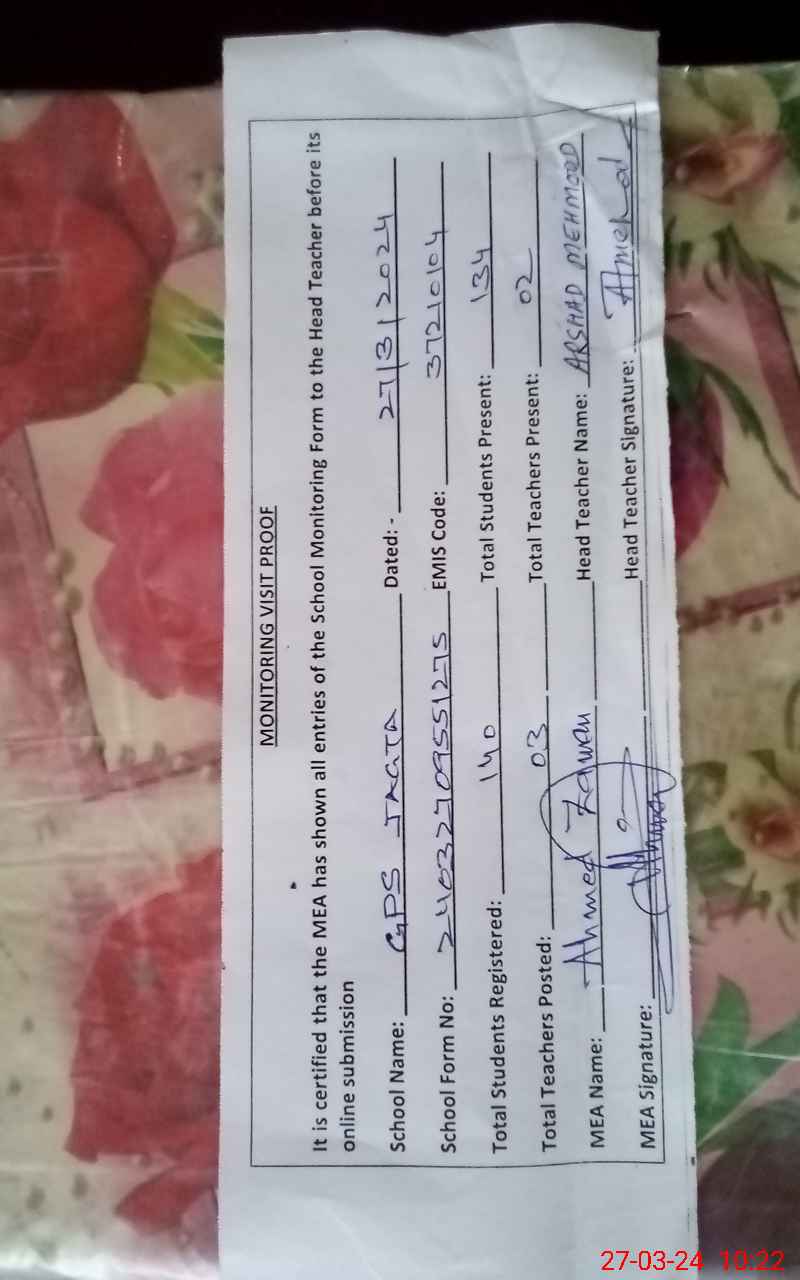 MONITORING VISIT PROOF
It is certified that the MEA has shown all entries of the School Monitoring Form to the Head Teacher before its
online submission
School Name: GPS JAGTA Dated: - 27/3/2024
School Form No: 24032709551275 EMIS Code: 37210104
Total Students Registered: 140 Total Students Present: 134
Total Teachers Posted: 03 Total Teachers Present: 02
MEA Name: Ahmed Head Teacher Name: ARSHAD MEHMOOD
MEA Signature: Head Teacher Signature:
27-03-24 10:22